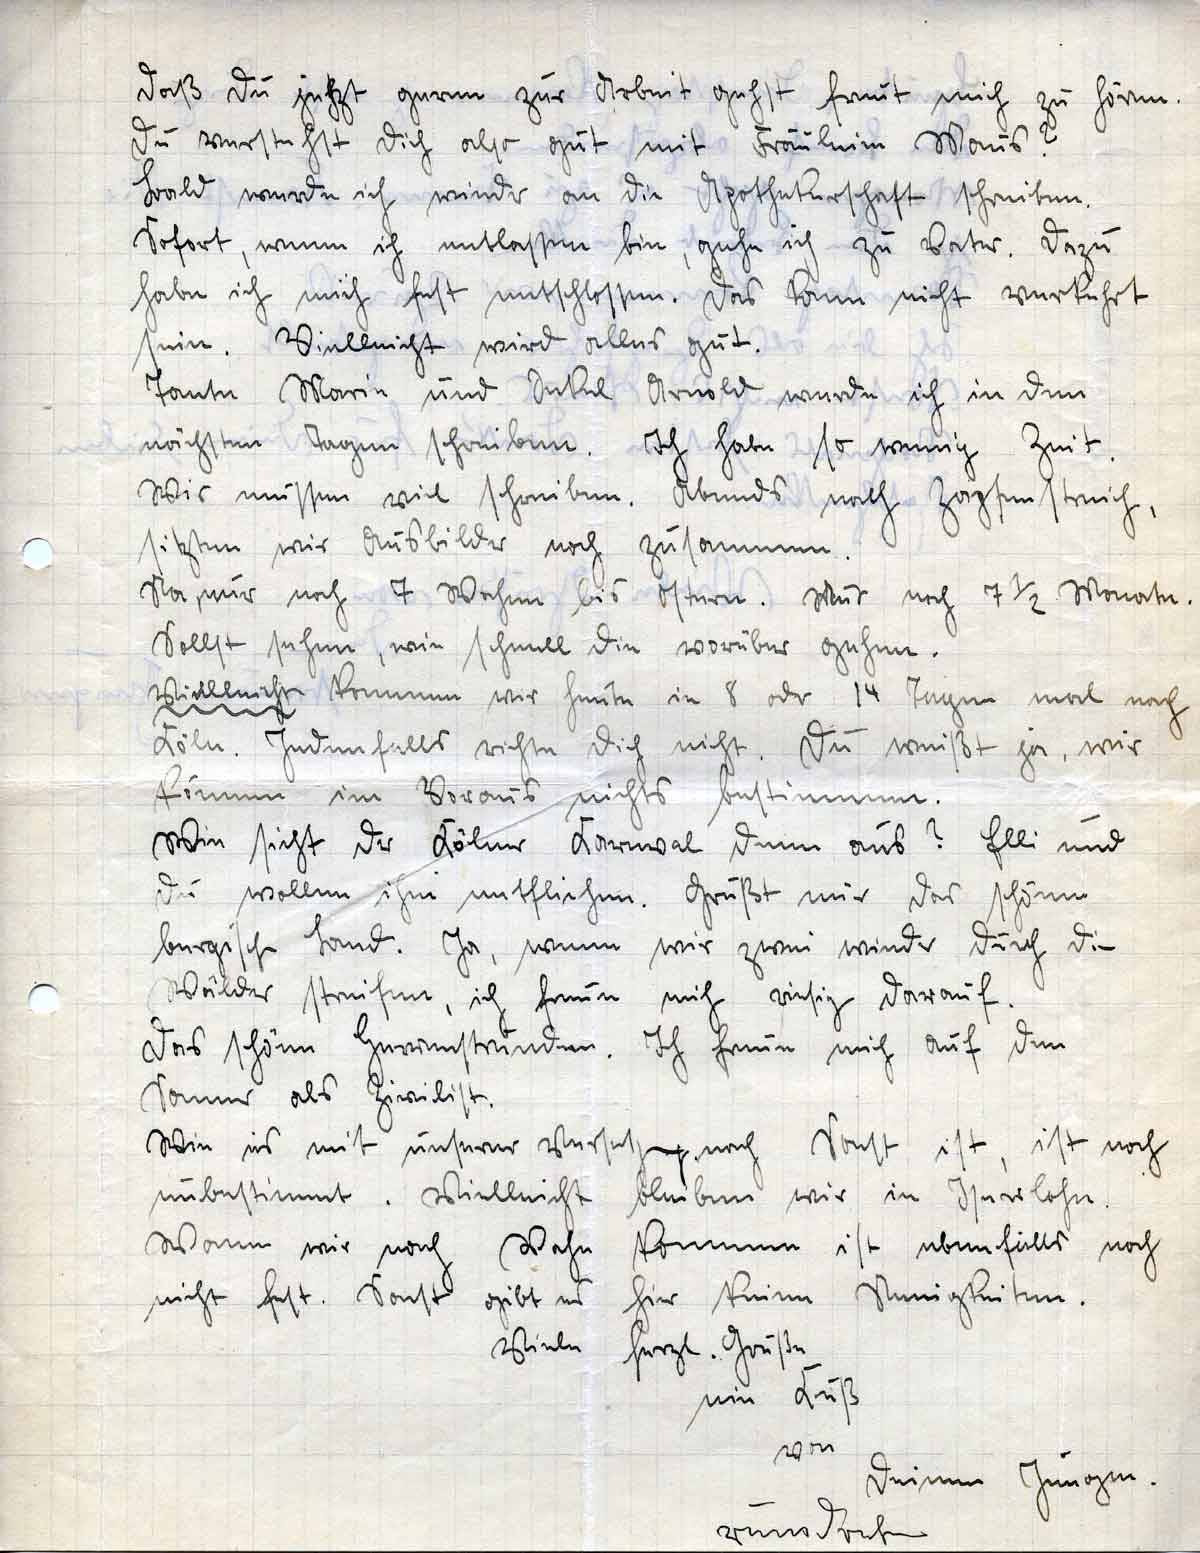 Daß Du jetzt gerne zur Arbeit gehst freut mich zu hören.
Du verstehst Dich also gut mit Fräulein Maus?
Bald werde ich wieder an die Apothekerschaft schreiben.
Sofort, wenn ich entlassen bin, gehe ich zu Vater. Dazu
habe ich mich fest entschlossen. Das kann nicht verkehrt
sein. Vielleicht wird alles gut.
Tante Marie und Onkel Arnold werde ich in den
nächsten Tagen schreiben. Ich habe so wenig Zeit.
Wir müssen viel schreiben. Abends nach Zapfenstreich,
sitzen wir Ausbilder noch zusammen.
Na, nur noch 7 Wochen bis Ostern. Nur noch 7 1/2 Monate.
Sollst sehen, wie schnell die vorüber gehen.
Vielleicht kommen wir heute in 8 oder 14 Tagen mal nach
Köln. Jedenfalls richte Dich nicht. Du weißt ja, wir
können im Voraus nichts bestimmen.
Wie sieht der Kölner Karneval denn aus? Elli und
Du wollen ihm entfliehen. Grüßt mir das schöne
bergische Land. Ja, wenn wir zwei wieder durch die
Wälder streifen, ich freue mich riesig darauf.
Das schöne Herrenstrunden. Ich freue mich auf den
Sommer als Zivilist.
Wie es mit unserer Versetzung nach Soest ist, ist noch
unbestimmt. Vielleicht bleiben wir in Iserlohn.
Wann wir nach Wahn kommen ist ebenfalls noch
nicht fest. Sonst gibt es hier keine Neuigkeiten.
Viele herzl. Grüße
ein Kuß
von
Deinem Jungen.